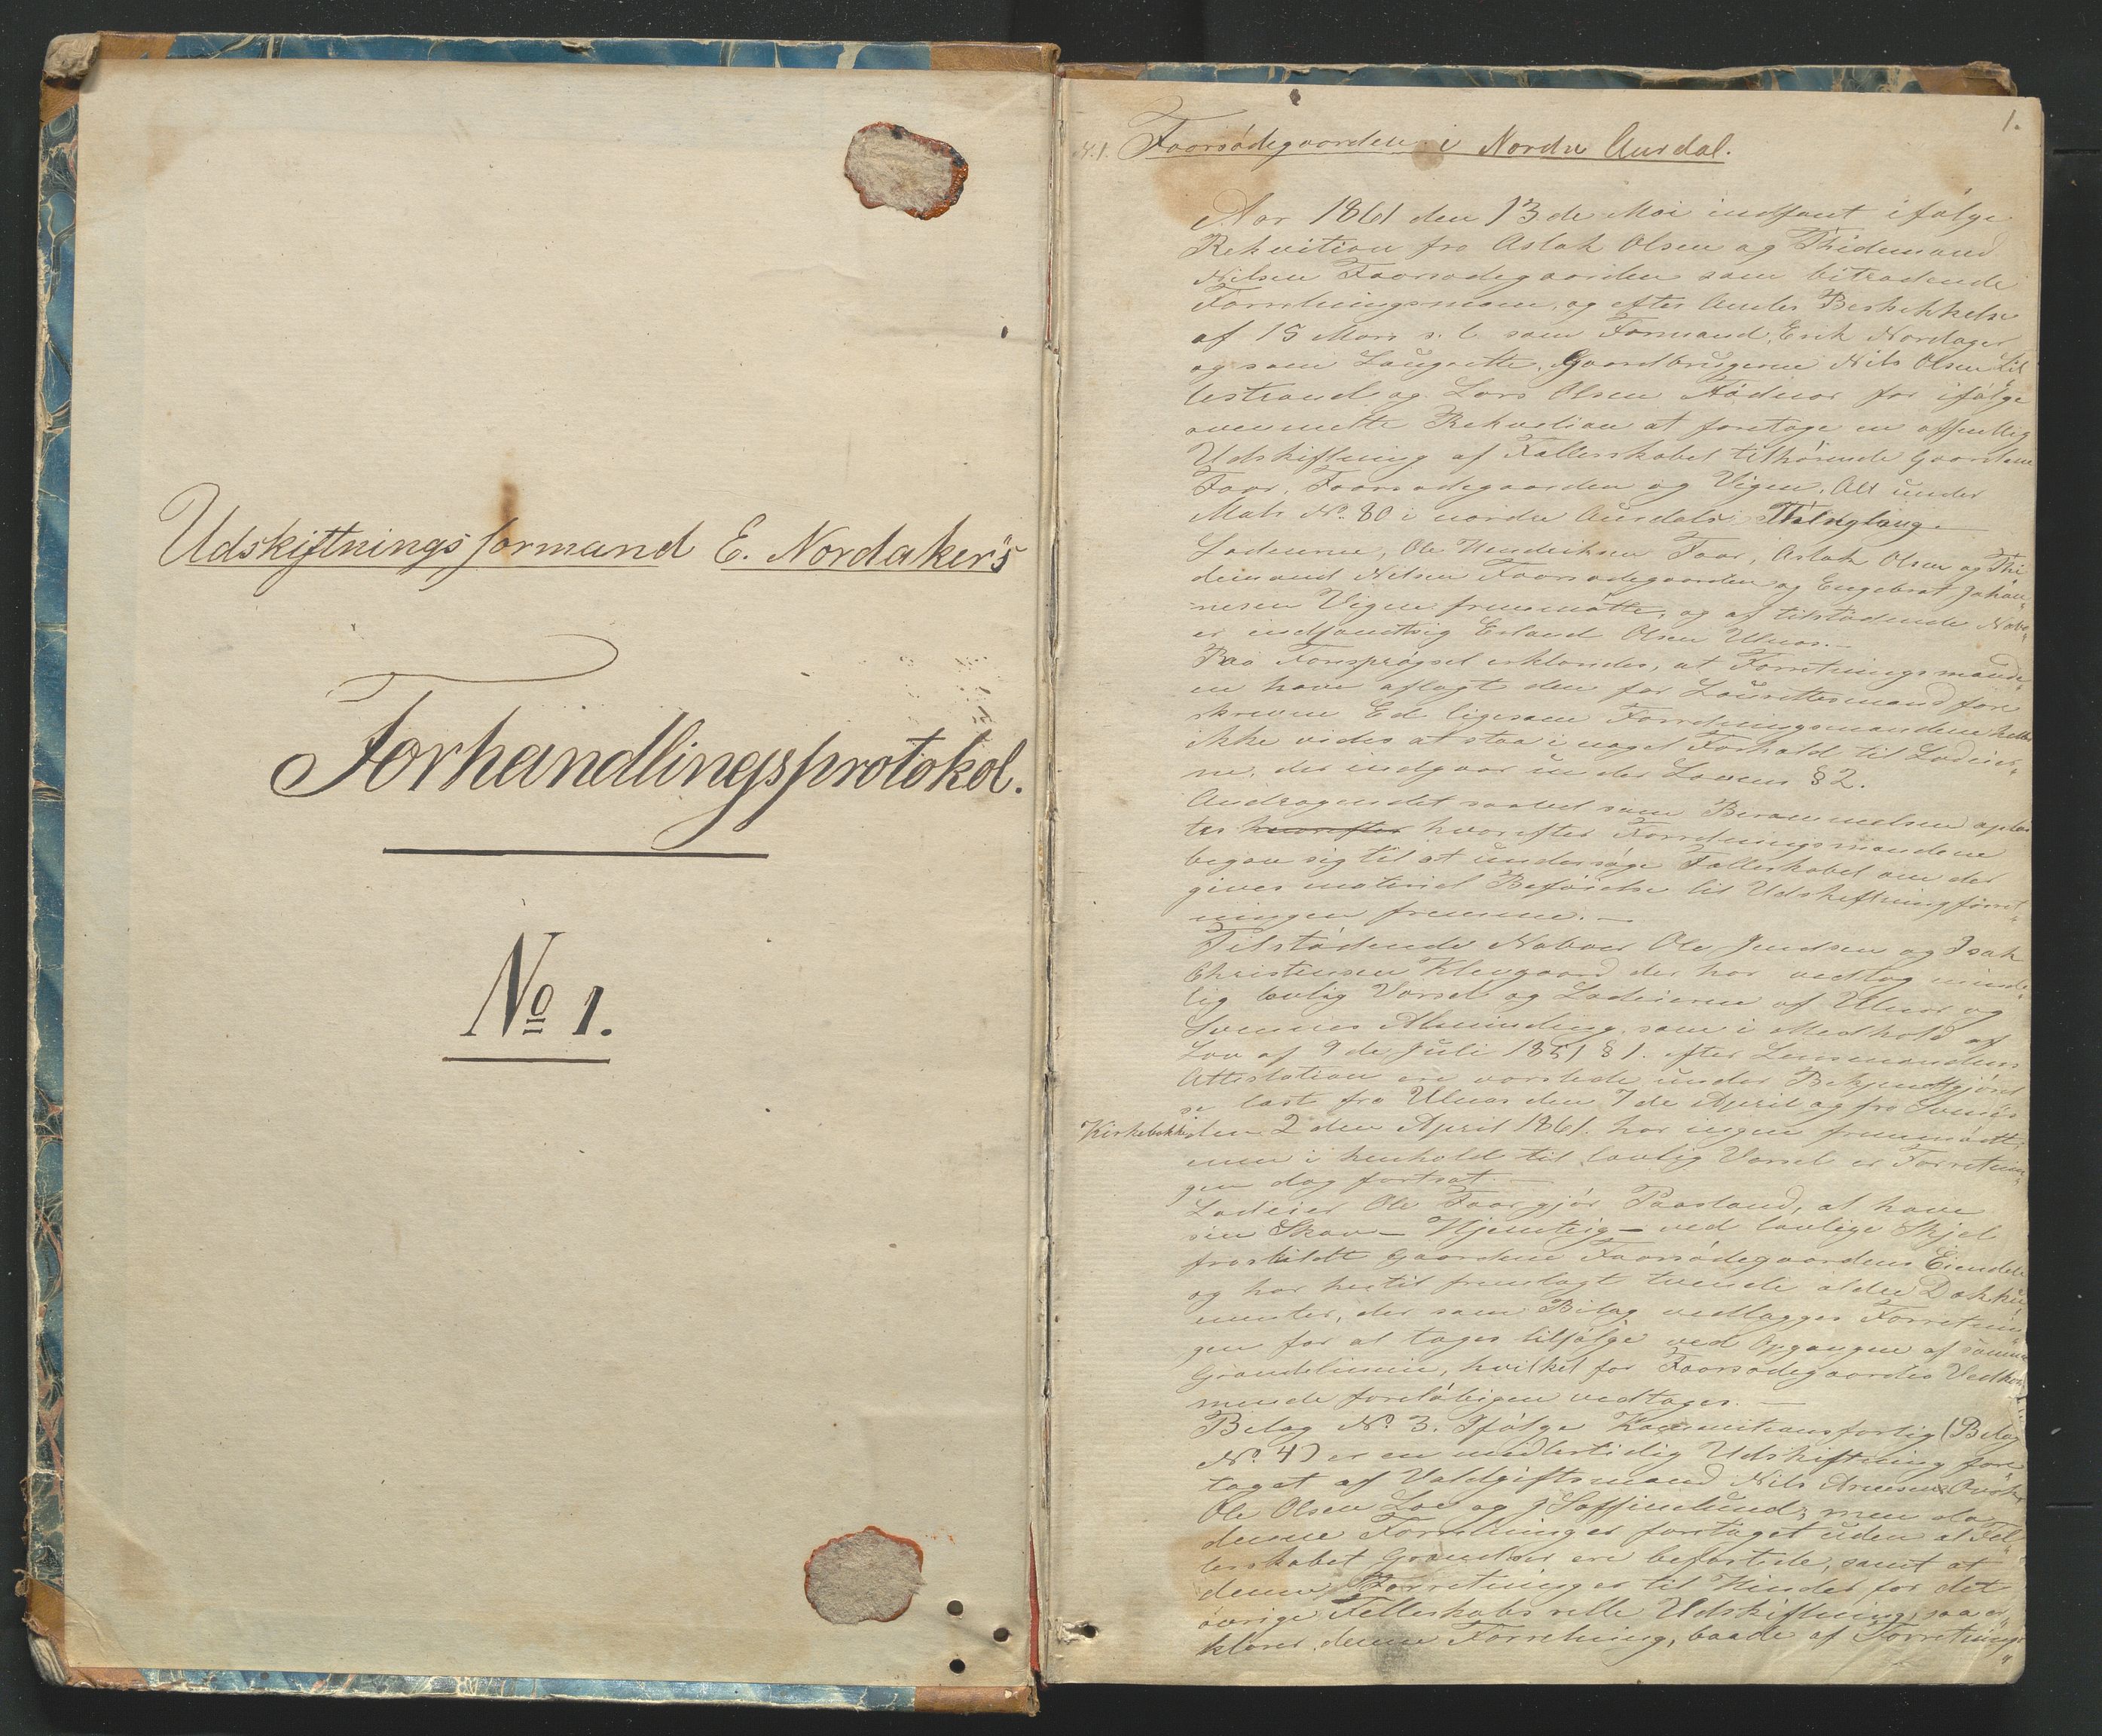 Udskiftningsformand E. Nordaker's
Forhandlingsprotokol.
No 1.
1.
N. 1. Faarsødegaarden i Nordre Aurdal.
Aar 1861 den 13de Mai indfant ifølge
Rekvition fra Aslak Olsen og Thidemand
Nilsen Faarsødegaarden som bitrædende
Forretningsmænd, og efter Amtets Beskikkelse
af 15 Mars s. l. som Formand, Erik Nordager
og som Laugrette, Gaardbrugerne Nils Olsen Lil
lestrand og Lars Olsen Fødnæs for ifølge
ovenmeldte Rekvistion at foretage en offentlig
Udskiftning af Fællesskabet tilhørende Gaardene
Faar, Faarsødegaarden og Vigen, Alt under
Matr No. 80 i nordre Aurdals Thinglaug.
Lodeierne, Ole Hendriksen Faar, Aslak Olsen og Thi
demand Nilsen Faarsødegaarden og Engebret Johan„
nesen Vigen fremmøtte, og af tilstødende Nabo„
er indfandt sig Erland Olsen Ulnæs.
Paa Forespørgsel erklæredes, at Forretningsmænde„
ne have aflagt den for Laurettesmænd fore
skrevne Ed ligesom Forretningsmændene heller
ikke vides at staa i noget Forhold til Lodeier„
ne, der indgaar under Lovens § 2.
Andragendet saavel som Berammelsen oplæs
tes hvorefter hvorefter Forretningsmændene
begav sig til at undersøge Fælleskabet om der
gives materiel Beføielse til Udskiftningforret„
ningen fremme.
Tilstødende Naboer Ole Knudsen og Isak
Christensen Klevgaard der har vedtog mindt„
lig lovlig Varsel og Lodeierne af Ulnæs og
Svennes Alminding, som i Medhold af
Lov af 9de Juli 1851 § 1. efter Lensmandens
Attestation ere varslede under Bekjendtgjørel
se læst fra Ulnæs den 7de April og fra Svenes
Kirkebakke den 2den April 1861. har ingen fremmødt,
men i henhold til lovlig Varsel er Forretnin„
gen dog fortsat.
Lodeier Ole Faar gjør Paastand, at have
sin Skov – Hjemteig – ved lovlige Skjel
fraskildt Gaardene Faarsødegaardens Eiendele
og har hertil fremlagt tvende ældre Dokku
menter, der som Bilag vedlægges Forretnin
gen for at tages tilfølge ved Opgangen af samme
Grændelinie, hvilket for Faarsødegaardens Vedkom
mende foreløbigen vedtages.
Belag No. 3. Ifølge Kommitionsforlig (Belag
No. 4) er en midlertidig Udskiftning fore
taget af Voldgiftsmænd Nils Arnesen
Ole Olsen Loe og men da
denne Forretning er foretaget uden at Fæl„
lesskabet Grændser ere befarede, samt at
denne Forretning er til Hinder for det
øvrige Felleskabs rette Udskiftning, saa er„
klæres denne Forretning, baade af Forretnings„